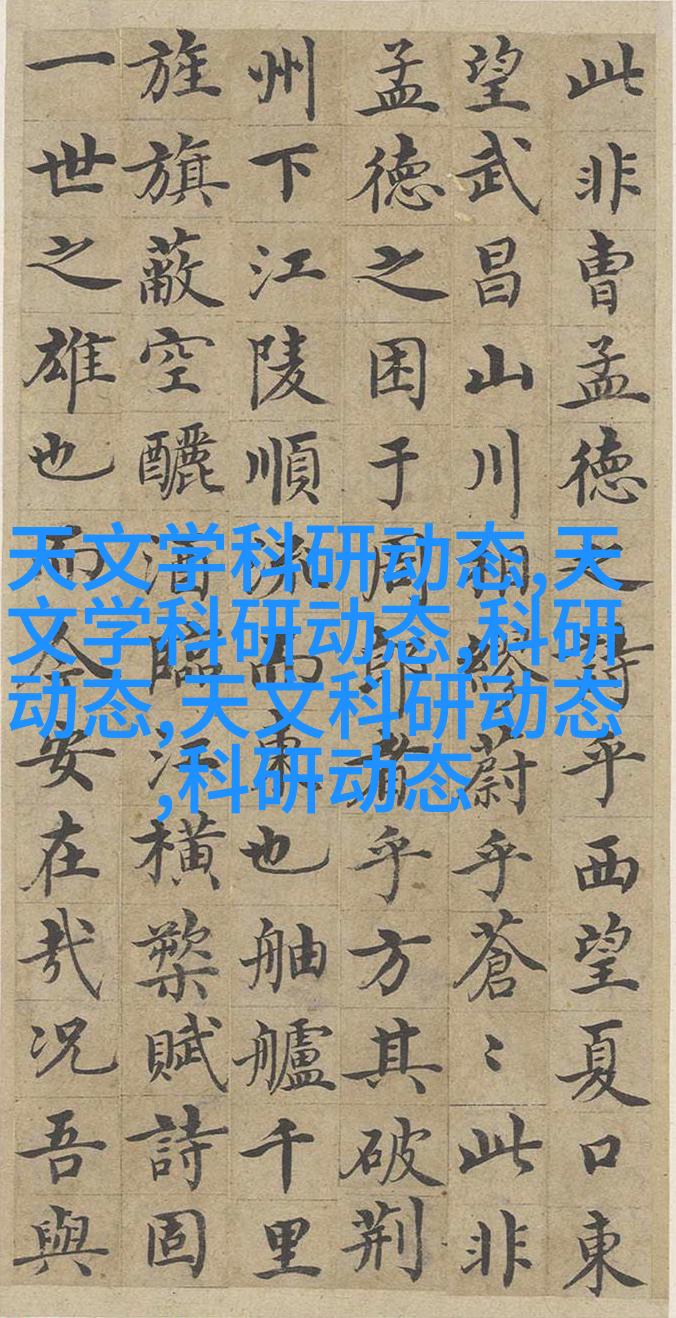 此非曹孟德之詩乎西望夏口東
望武昌山川相繆蔚乎蒼〻此非
孟德之困于周郎者乎方其破荆
州下江陵順流而東也舳艫千里
旌旗蔽空釃酒臨江横槊賦詩固
一世之雄也而今安在哉况吾與
天文学科研动态,天
文学科研动态,科研
动态,天文科研动态
,科研动态